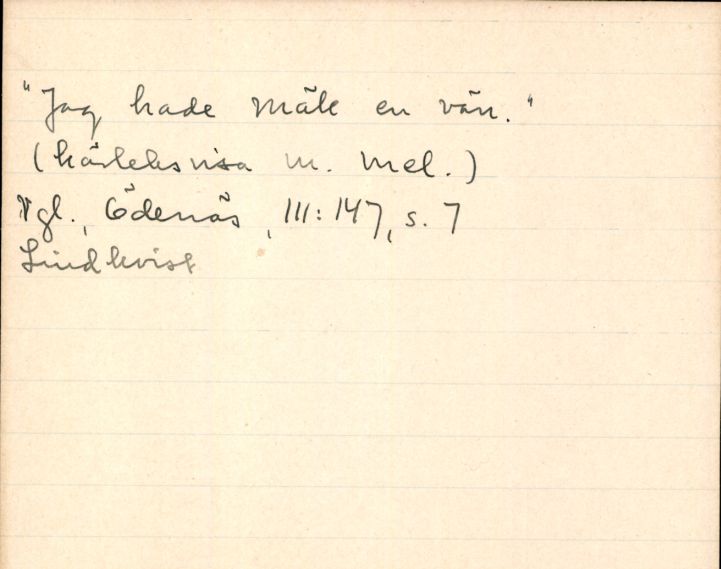 "Jag hade mäle en vän."
(kärleksvisa m. mel.)
Vgl., Ödenäs, III:147, s. 7
Lindkvist